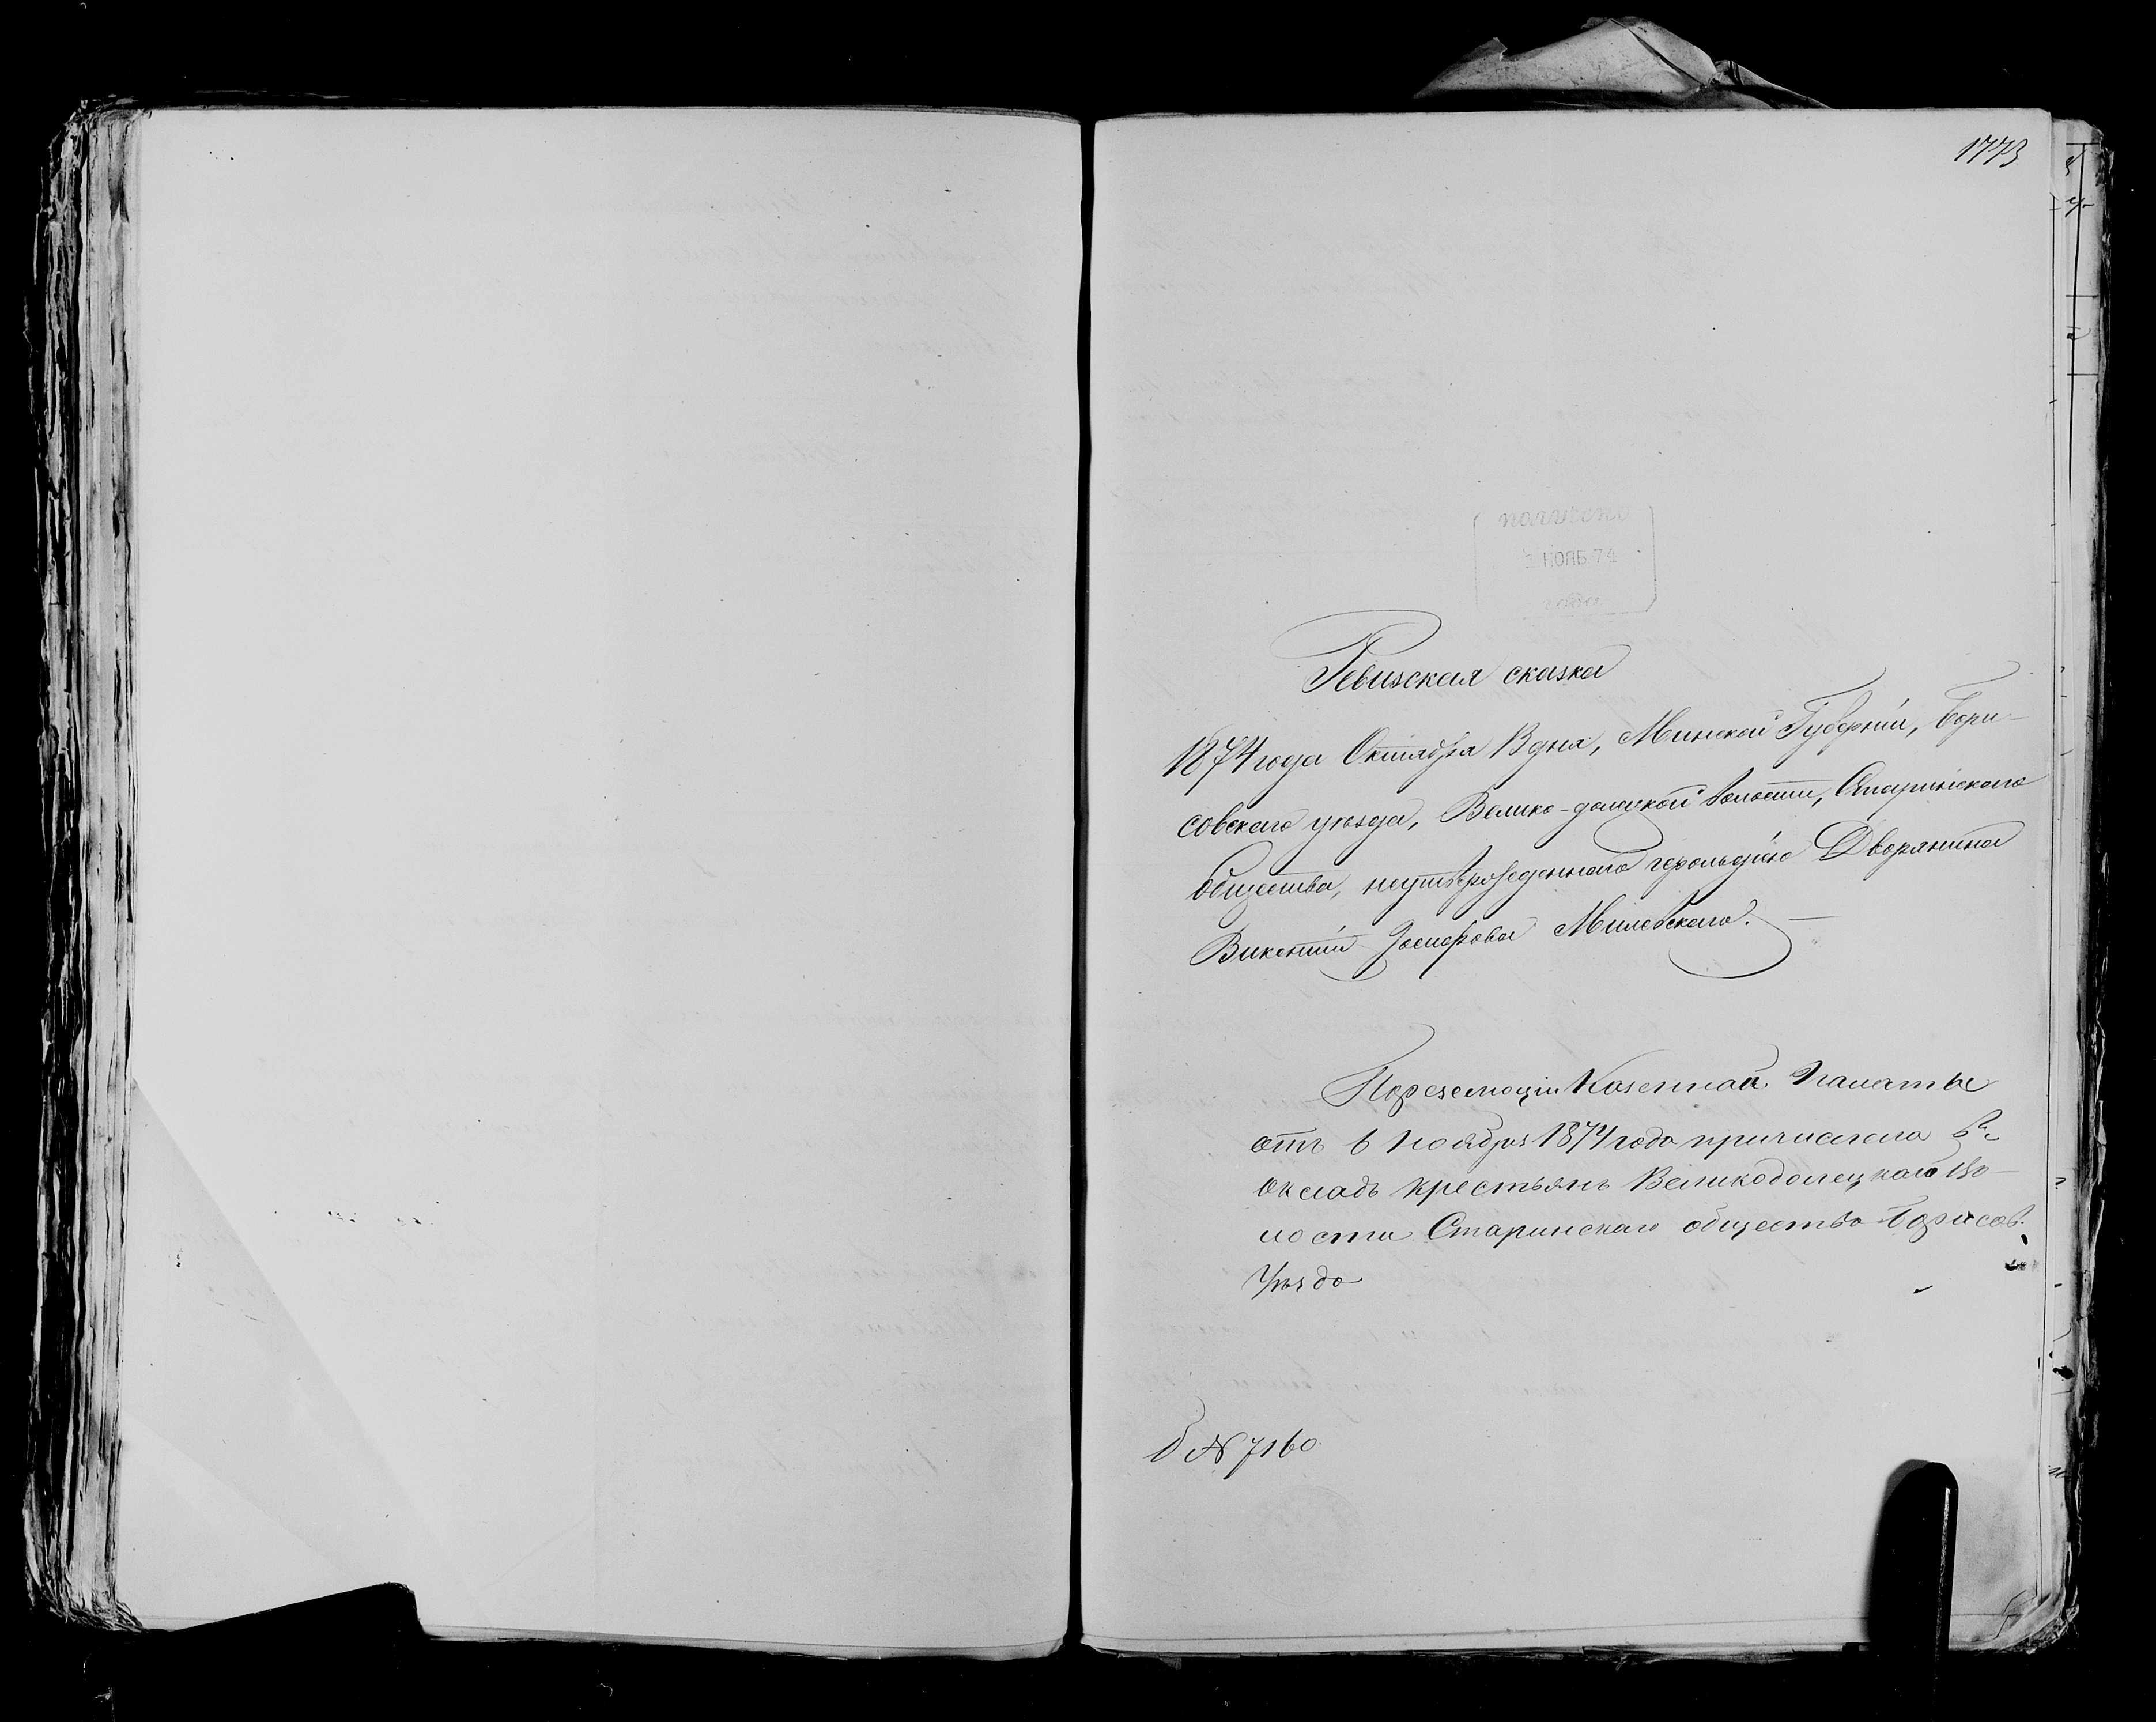 1773
получено
НОЯБ 74
года
Ревизская сказка
1874 года Октября 13 дня, Минской Губерніи, Бори-
совскаго уѣзда, Велико-долецкой волости, Старинскаго
общества, неутвержденнаго герольдіею Дворянина
Викентія Іосифова Милевскаго. —
По резолюціи Казенной Палаты
отъ 6 Ноября 1874 года причислена въ
окладъ крестьянъ Великодолецкой во-
лости Старинскаго общества Борисов.
уѣзда
№ 7160